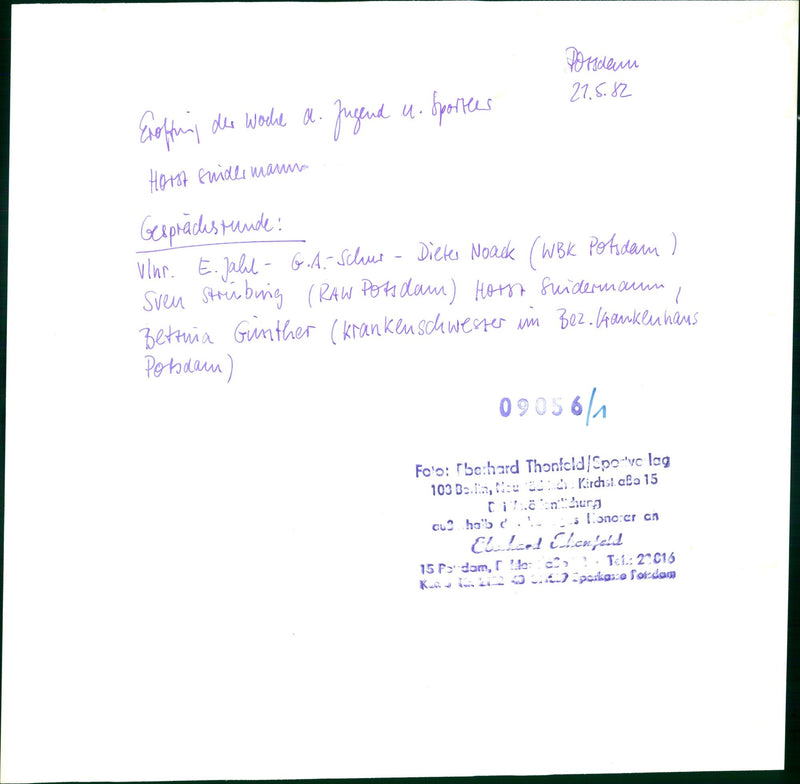 Potsdam
21.5.82
Eröffnung der Woche d. Jugend u. Sportler
Horst Sindermann
Gesprächsrunde:
Vlnr. E. Jahl - G.A.-Schur - Dieter Noack (WBK Potsdam)
Sven Strübing (RAW Potsdam) Horst Sindermann,
Bettina Günther (Krankenschwester im Bez. Krankenhaus
Potsdam)
09056/1
Foto: Eberhard Thonfeld/Sportverlag
103 Berlin, Kirchstraße 15
außerhalb Honorar an
Eberhard Thonfeld
15 Potsdam, Tel.:
Sparkasse Potsdam